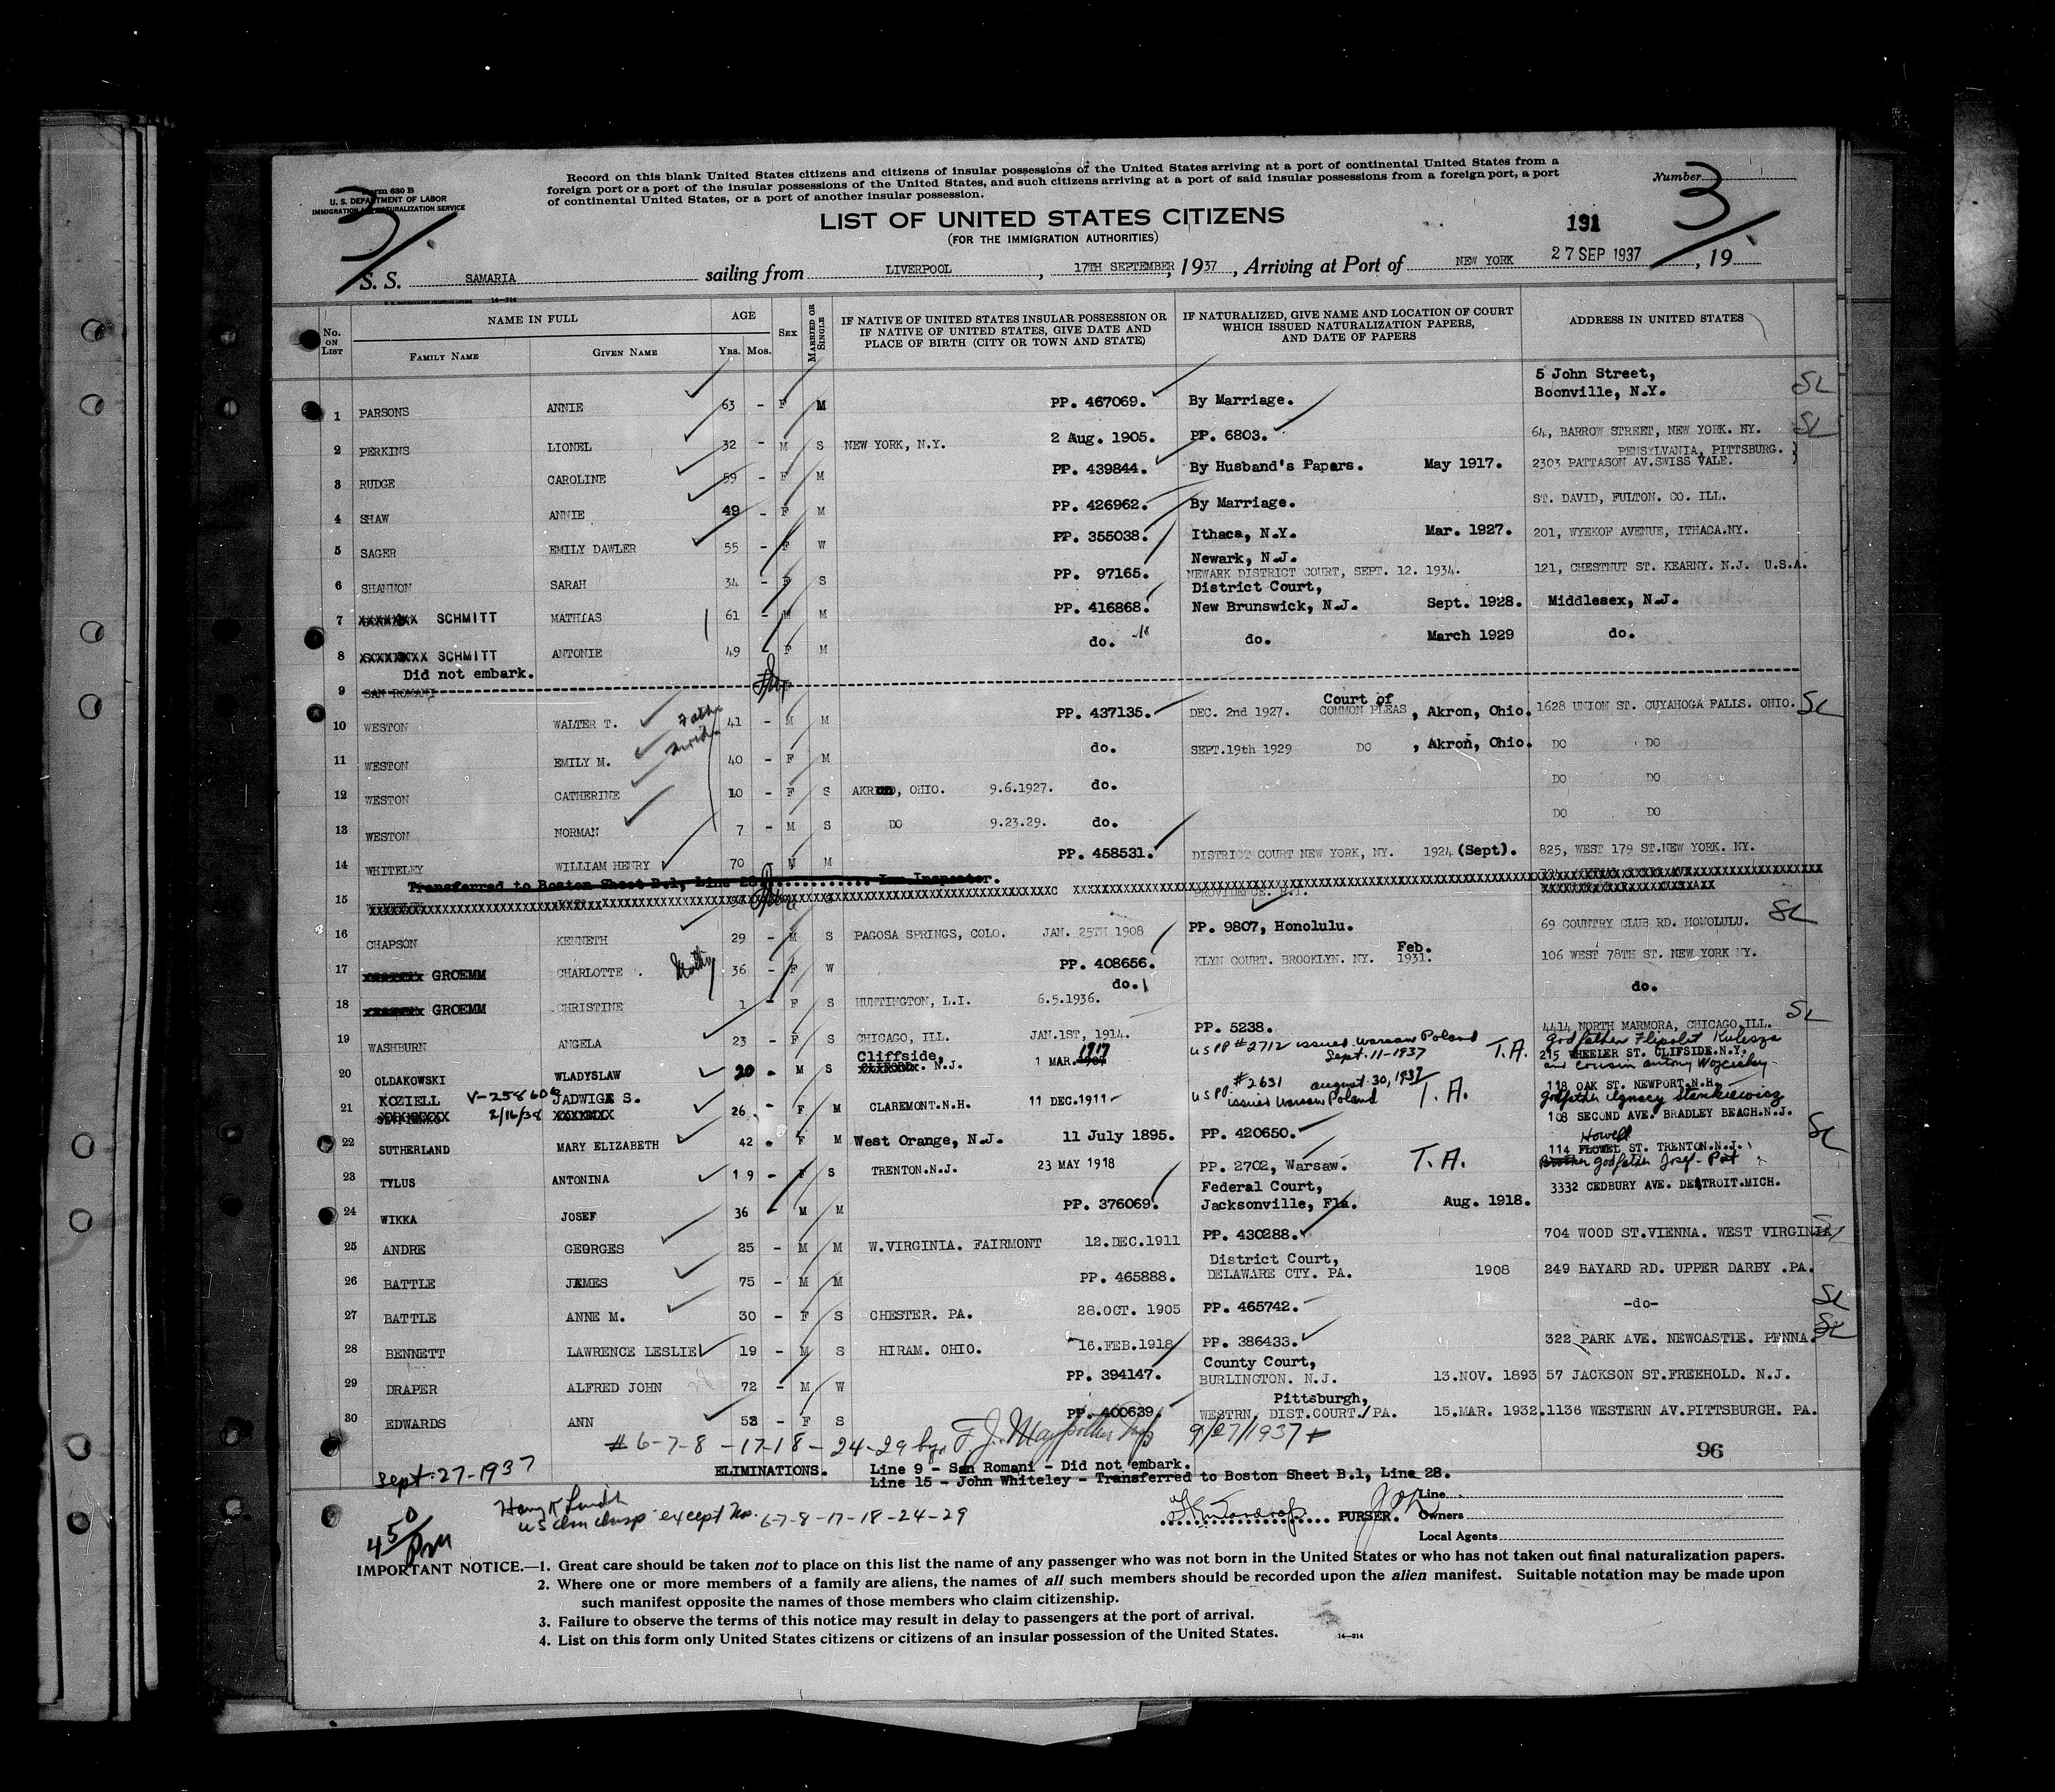 Form 630 B
U. S. DEPARTMENT OF LABOR
IMMIGRATION AND NATURALIZATION SERVICE
3
Record on this blank United States citizens and citizens of insular possessions of the United States arriving at a port of continental United States from a
foreign port or a port of the insular possessions of the United States, and such citizens arriving at a port of said insular possessions from a foreign port, a port
of continental United States, or a port of another insular possession.
Number
3
LIST OF UNITED STATES CITIZENS
(FOR THE IMMIGRATION AUTHORITIES)
191
S. S. SAMARIA sailing from LIVERPOOL, 17TH SEPTEMBER, 1937, Arriving at Port of NEW YORK 27 SEP 1937, 19
14—214
No. on List
NAME IN FULL
FAMILY NAME GIVEN NAME
AGE
Yrs. Mos.
SEX
MARRIED OR SINGLE
IF NATIVE OF UNITED STATES INSULAR POSSESSION OR
IF NATIVE OF UNITED STATES, GIVE DATE AND
PLACE OF BIRTH (CITY OR TOWN AND STATE)
IF NATURALIZED, GIVE NAME AND LOCATION OF COURT
WHICH ISSUED NATURALIZATION PAPERS,
AND DATE OF PAPERS
ADDRESS IN UNITED STATES
5 John Street,
Boonville, N.Y. SL
1 PARSONS ANNIE 63 - F M PP. 467069. By Marriage.
2 PERKINS LIONEL 32 - M S NEW YORK, N.Y. 2 Aug. 1905. PP. 6803. 64, BARROW STREET, NEW YORK. NY. SL
PENSYLVANIA, PITTSBURG.
3 RUDGE CAROLINE 59 - F M PP. 439844. By Husband's Papers. May 1917. 2303 PATTASON AV.SWISS VALE.
4 SHAW ANNIE 49 - F M PP. 426962. By Marriage. ST. DAVID, FULTON. CO. ILL.
5 SAGER EMILY DAWLER 55 - F W PP. 355038. Ithaca, N.Y. Mar. 1927. 201, WYEKOF AVENUE, ITHACA.NY.
Newark, N.J.
6 SHANNON SARAH 34 - F S PP. 97165. NEWARK DISTRICT COURT, SEPT. 12. 1934. 121, CHESTNUT ST. KEARNY. N.J. U.S.A.
District Court,
7 SCHMITT MATHIAS 61 - M M PP. 416868. New Brunswick, N.J. Sept. 1928. Middlesex, N.J.
8 SCHMITT ANTONIE 49 - F M do. do. March 1929 do.
Did not embark.
9 SAN ROMANI
Court of
10 WESTON WALTER T. 41 - M M PP. 437135. DEC. 2nd 1927. COMMON PLEAS, Akron, Ohio. 1628 UNION ST. CUYAHOGA FALLS. OHIO. SL
11 WESTON EMILY M. 40 - F M do. SEPT.19th 1929 DO, Akron, Ohio. DO DO
12 WESTON CATHERINE 10 - F S AKRON, OHIO. 9.6.1927. do. DO DO
13 WESTON NORMAN 7 - M S DO 9.23.29. do. DO DO
14 WHITELEY WILLIAM HENRY 70 M M PP. 458531. DISTRICT COURT NEW YORK, NY. 1924 (Sept). 825, WEST 179 ST.NEW YORK. NY.
Transferred to Boston Sheet B.1, Line 28. Imm Inspector.
15 PROVIDENCE. R.I.
16 CHAPSON KENNETH 29 - M S PAGOSA SPRINGS, COLO. JAN. 25TH 1908 PP. 9807, Honolulu. 69 COUNTRY CLUB RD. HONOLULU. SL
Feb.
17 GROEMM CHARLOTTE Mother 36 - F W PP. 408656. KLYN COURT. BROOKLYN. NY. 1931. 106 WEST 78TH ST. NEW YORK NY.
18 GROEMM CHRISTINE 1 - F S HUNTINGTON, L.I. 6.5.1936. do. do.
19 WASHBURN ANGELA 23 - F S CHICAGO, ILL. JAN.1ST, 1914. PP. 5238. 4414 NORTH MARMORA, CHICAGO, ILL. SL
US PP #2712 issued Warsaw Poland Sept. 11-1937 T.A. godfather Flipolit Kulesza
20 OLDAKOWSKI WLADYSLAW 20 - M S Cliffside, N.J. 1 MAR. 1917 215 WHEELER ST. CLIFSIDE.N.Y.
and cousin antony
21 KOZIELL V-258608 2/16/38 JADWIGA S. 26 - F M CLAREMONT.N.H. 11 DEC.1911 US PP. #2631 august 30, 1937 issued Warsaw Poland T.A. 118 OAK ST. NEWPORT.N.H.
godfather Ignacy Stankiewicz
22 SUTHERLAND MARY ELIZABETH 42 - F M West Orange, N.J. 11 July 1895. PP. 420650. 108 SECOND AVE. BRADLEY BEACH.N.J. SL
Howell
23 TYLUS ANTONINA 19 - F S TRENTON.N.J. 23 MAY 1918 PP. 2702, Warsaw. T.A. 114 FLOWEL ST. TRENTON.N.J.
Brother godfather Josef
Federal Court,
24 WIKKA JOSEF 36 - M M PP. 376069. Jacksonville, Fla. Aug. 1918. 3332 CEDBURY AVE. DETROIT.MICH.
25 ANDRE GEORGES 25 - M M W.VIRGINIA. FAIRMONT 12.DEC.1911 PP. 430288. 704 WOOD ST.VIENNA. WEST VIRGINIA
District Court,
26 BATTLE JAMES 75 - M M PP. 465888. DELAWARE CTY. PA. 1908 249 BAYARD RD. UPPER DARBY .PA.
27 BATTLE ANNE M. 30 - F S CHESTER. PA. 28.OCT. 1905 PP. 465742. -do- SL
28 BENNETT LAWRENCE LESLIE 19 - M S HIRAM. OHIO. 16.FEB.1918 PP. 386433. 322 PARK AVE. NEWCASTLE. PENNA. SL
County Court,
29 DRAPER ALFRED JOHN 72 - M W PP. 394147. BURLINGTON. N.J. 13.NOV. 1893 57 JACKSON ST.FREEHOLD. N.J.
Pittsburgh,
30 EDWARDS ANN 53 - F S PP. 400639. WESTRN. DIST.COURT. PA. 15.MAR. 1932. 1136 WESTERN AV.PITTSBURGH. PA.
# 6-7-8-17-18-24-29 by 9/27/1937
96
Sept. 27-1937
ELIMINATIONS. Line 9 - San Romani - Did not embark.
Line 15 - John Whiteley - Transferred to Boston Sheet B.1, Line 28.
except No. 6-7-8-17-18-24-29
450 PM
PURSER.
Line
Owners
Local Agents
IMPORTANT NOTICE.—1. Great care should be taken not to place on this list the name of any passenger who was not born in the United States or who has not taken out final naturalization papers.
2. Where one or more members of a family are aliens, the names of all such members should be recorded upon the alien manifest. Suitable notation may be made upon
such manifest opposite the names of those members who claim citizenship.
3. Failure to observe the terms of this notice may result in delay to passengers at the port of arrival.
4. List on this form only United States citizens or citizens of an insular possession of the United States.
14—214